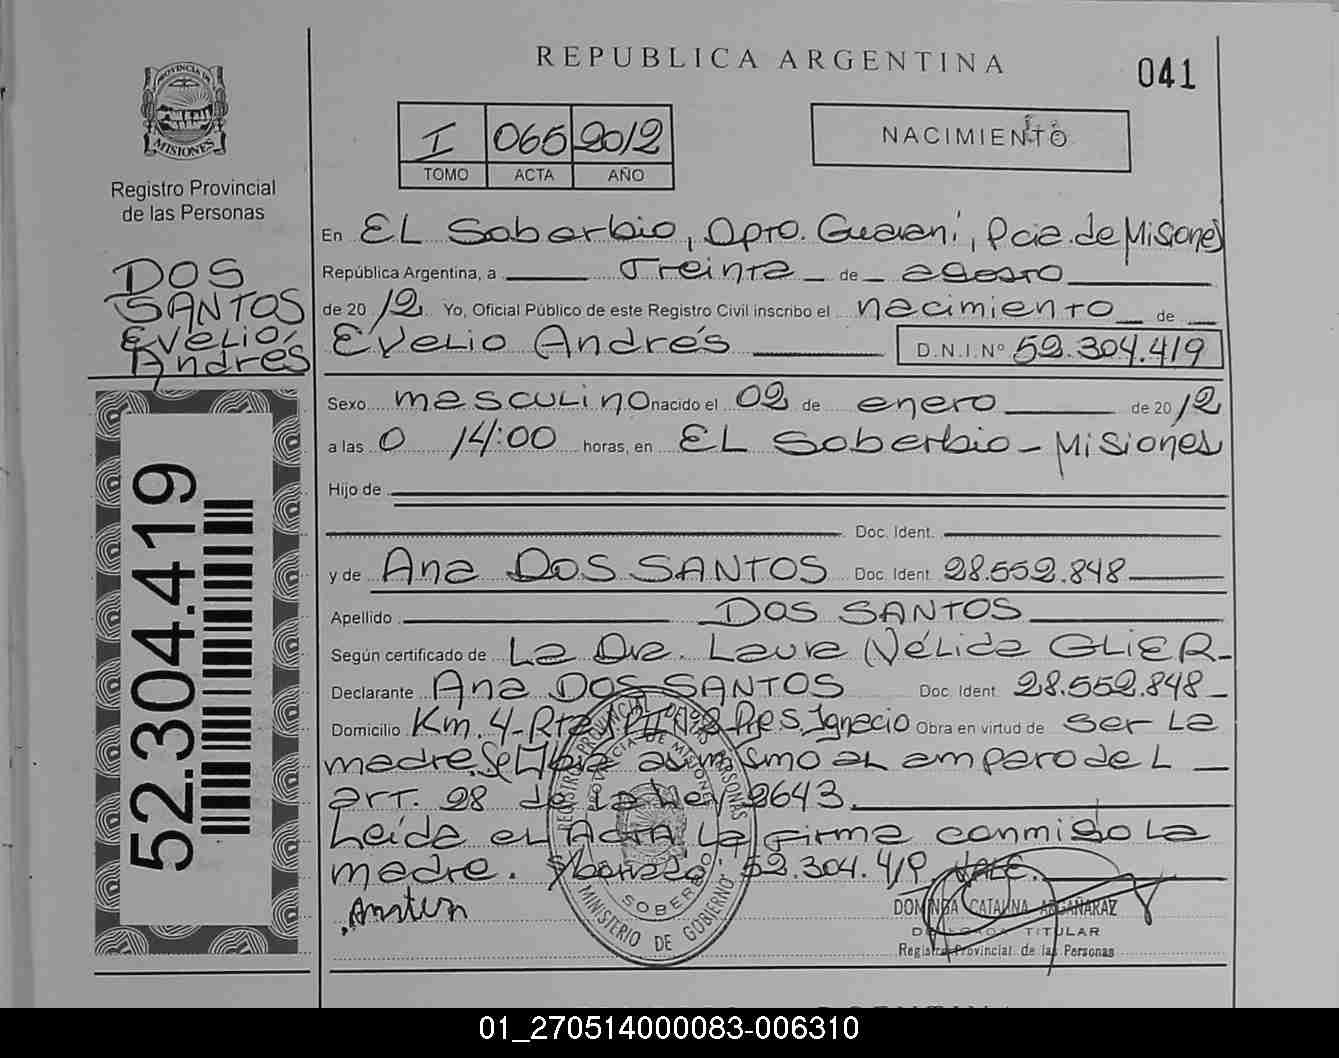 REPUBLICA ARGENTINA
041
PROVINCIA DE MISIONES
Registro Provincial
de las Personas
I 065 2012
TOMO ACTA AÑO
NACIMIENTO
DOS
SANTOS
Evelio
Andrés
52.304.419
En El Soberbio, Dpto. Guaraní, Pcia de Misiones
República Argentina, a Treinta de agosto
de 2012 Yo, Oficial Público de este Registro Civil inscribo el nacimiento de
Evelio Andrés D.N.I.Nº 52.304.419
Sexo masculino nacido el 02 de enero de 2012
a las 0 14:00 horas, en El Soberbio - Misiones
Hijo de
Doc. Ident.
y de Ana DOS SANTOS Doc. Ident. 28.552.848
Apellido DOS SANTOS
Según certificado de La Dra. Laura Nélida GLIER
Declarante Ana DOS SANTOS Doc. Ident. 28.552.848
Domicilio Km. 4- S. Ignacio Obra en virtud de ser la
madre. asimismo al amparo del
art. 28 de la Ley 2643.
Leída el Acta la firma conmigo la
madre. 52.304.419. VALE.
REGISTRO PROVINCIAL DE LAS PERSONAS
PROVINCIA DE MISIONES
SOBERBIO
MINISTERIO DE GOBIERNO
DOMINGA CATALINA ARGAÑARAZ
DELEGADA TITULAR
Registro Provincial de las Personas
01_270514000083-006310